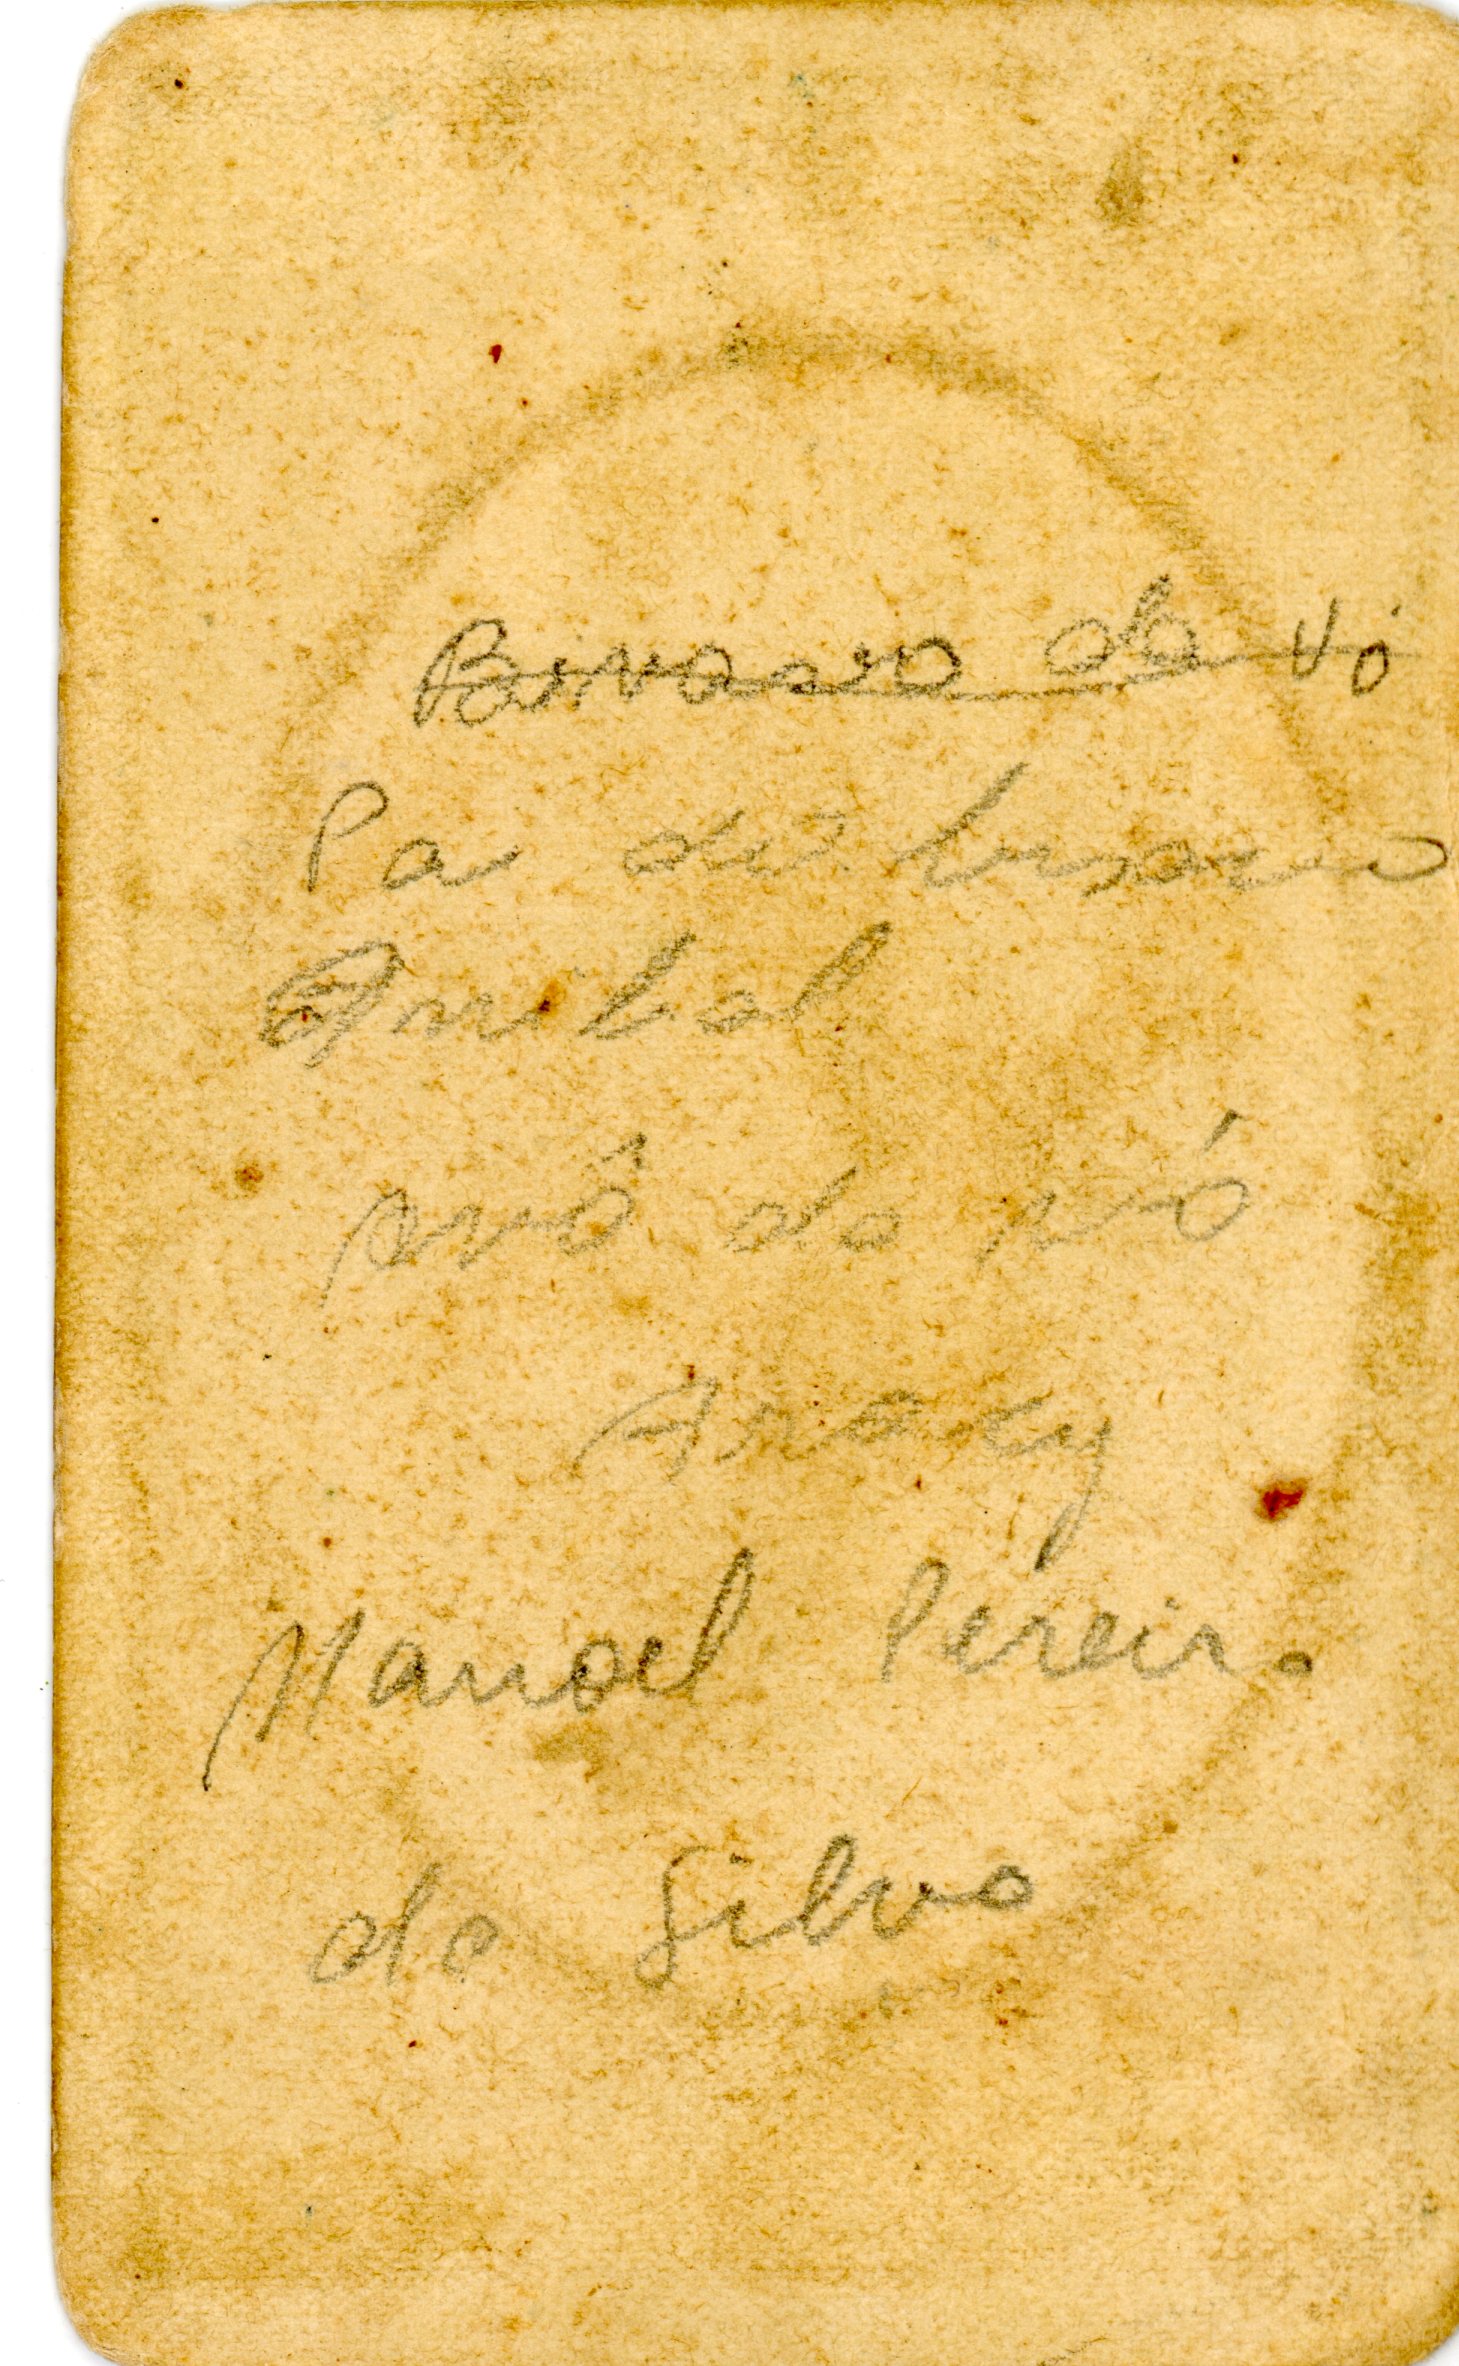 Bisavovo da Vó
Pai do bisavo
Anibal
avô da vó
Aracy
Manoel Pereira
da Silva